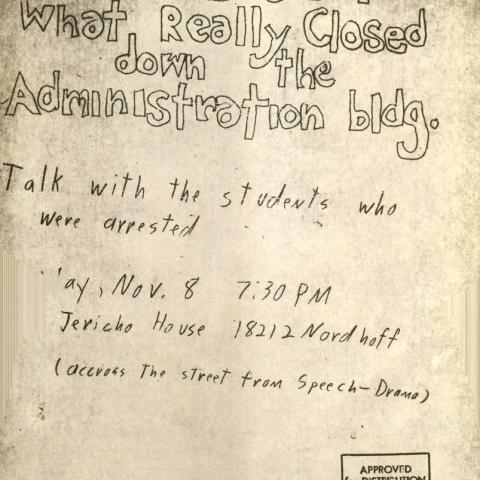 What Really Closed
down the
Administration bldg.
Talk with the students who
were arrested
ay, Nov. 8 7:30 PM
Jericho House 18212 Nordhoff
(accross the street from Speech-Drama)
APPROVED
for DISTRIBUTION